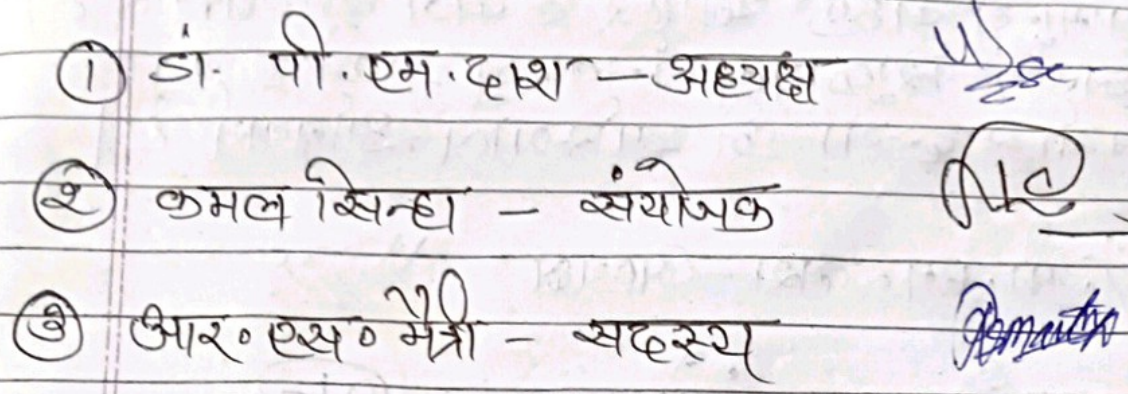 ① डां. पी. एम. दाश - अध्यक्ष
② कमल सिन्हा - संयोजक
③ आर॰ एस॰ मैत्री - सदस्य